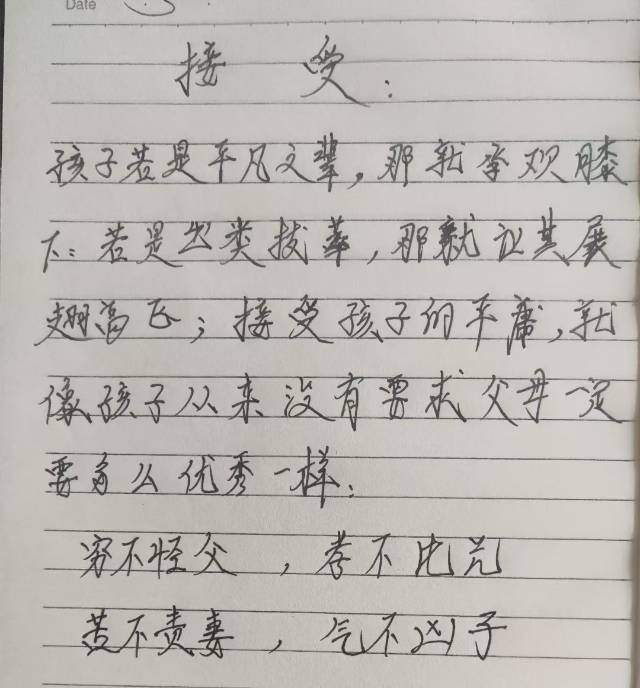 Date
接 受：
孩子若是平凡之辈，那就承欢膝
下：若是出类拔萃，那就让其展
翅高飞；接受孩子的平庸，就
像孩子从来没有要求父母一定
要多么优秀一样：
穷不怪父，孝不比兄
苦不责妻，气不凶子